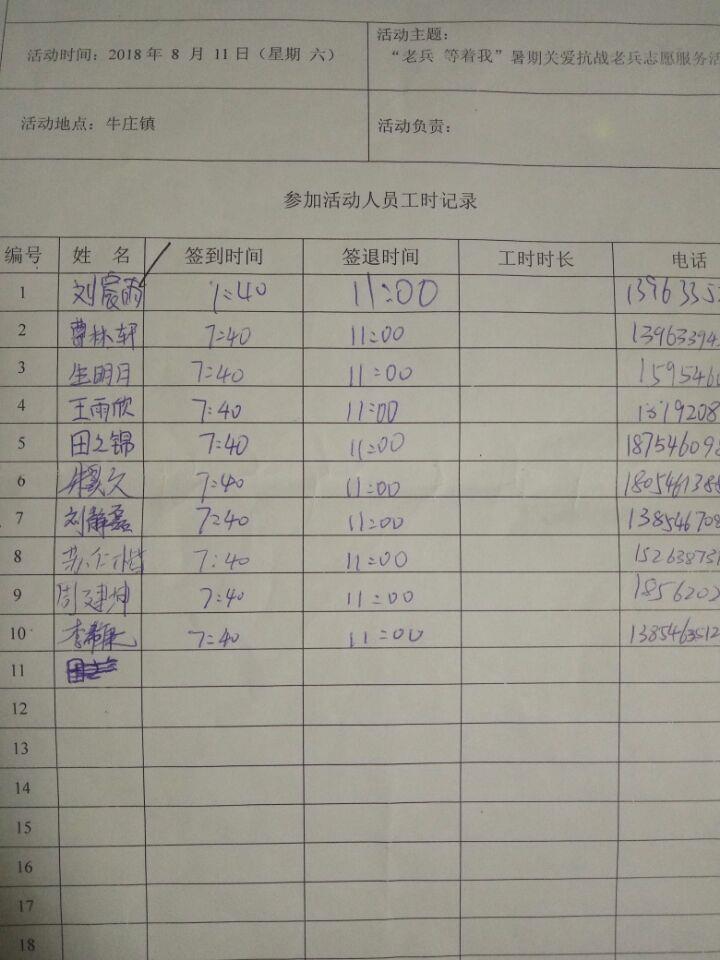 活动时间：2018 年 8 月 11 日（星期 六）
活动主题：
“老兵 等着我”暑期关爱抗战老兵志愿服务活
活动地点：牛庄镇
活动负责：
参加活动人员工时记录
编号 姓 名 签到时间 签退时间 工时时长 电话
1 刘宸雨 7:40 11:00 1396335
2 曹林轩 7:40 11:00 13963394
3 生明月 7:40 11:00 159546
4 王雨欣 7:40 11:00 19208
5 田之锦 7:40 11:00 187546098
6 7:40 11:00 180546138
7 刘静磊 7:40 11:00 138546708
8 苏仁楷 7:40 11:00 15263873
9 周建坤 7:40 11:00 1856202
10 李希康 7:40 11:00 1385463512
11
12
13
14
15
16
17
18